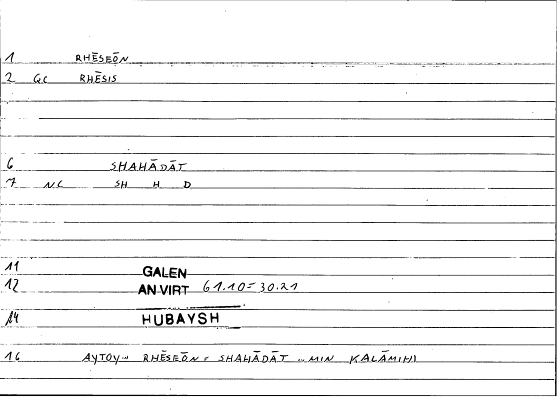 1 RHĒSEŌN
2 GC RHĒSIS
6 SHAHĀDĀT
7 NC SH H D
11 GALEN
12 AN VIRT 61.10 = 30.21
14 HUBAYSH
16 AYTOY... RHĒSEŌN = SHAHĀDĀT ... MIN KALĀMIHI